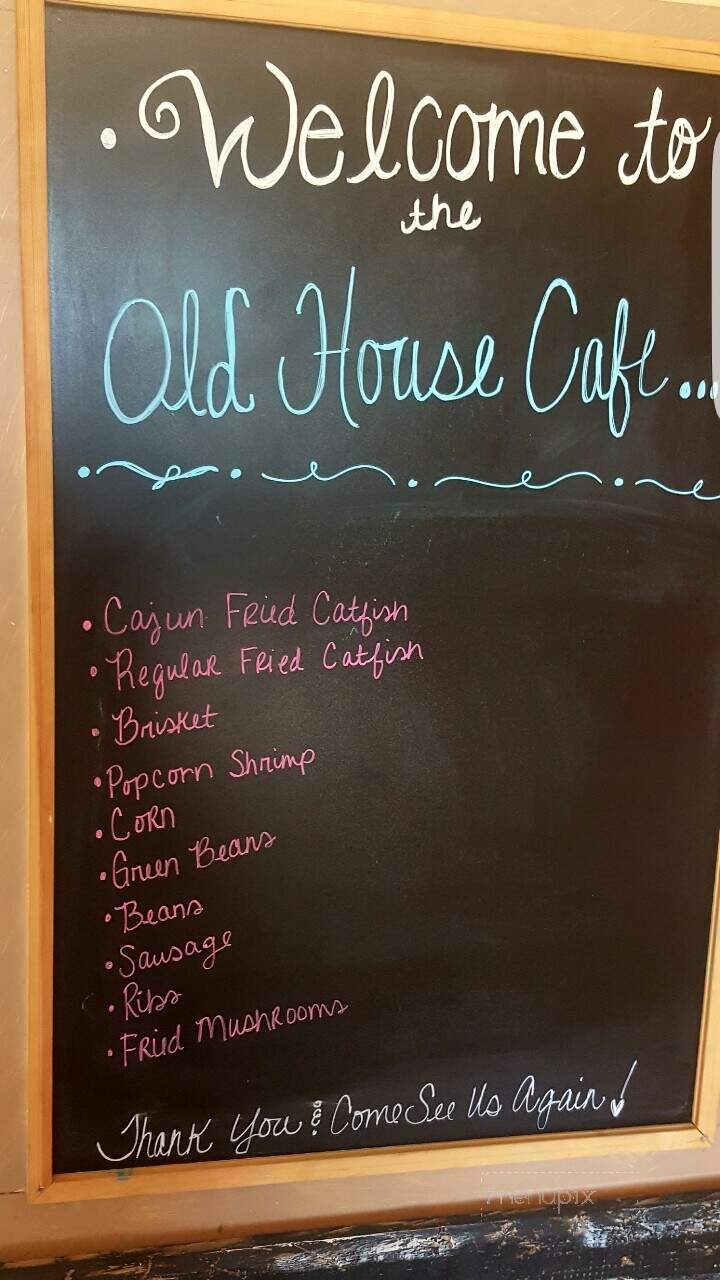 • Welcome to
the
Old House Cafe...
• Cajun Fried Catfish
• Regular Fried Catfish
• Brisket
• Popcorn Shrimp
• Corn
• Green Beans
• Beans
• Sausage
• Ribs
• Fried Mushrooms
Thank You & Come See Us Again!
menupix